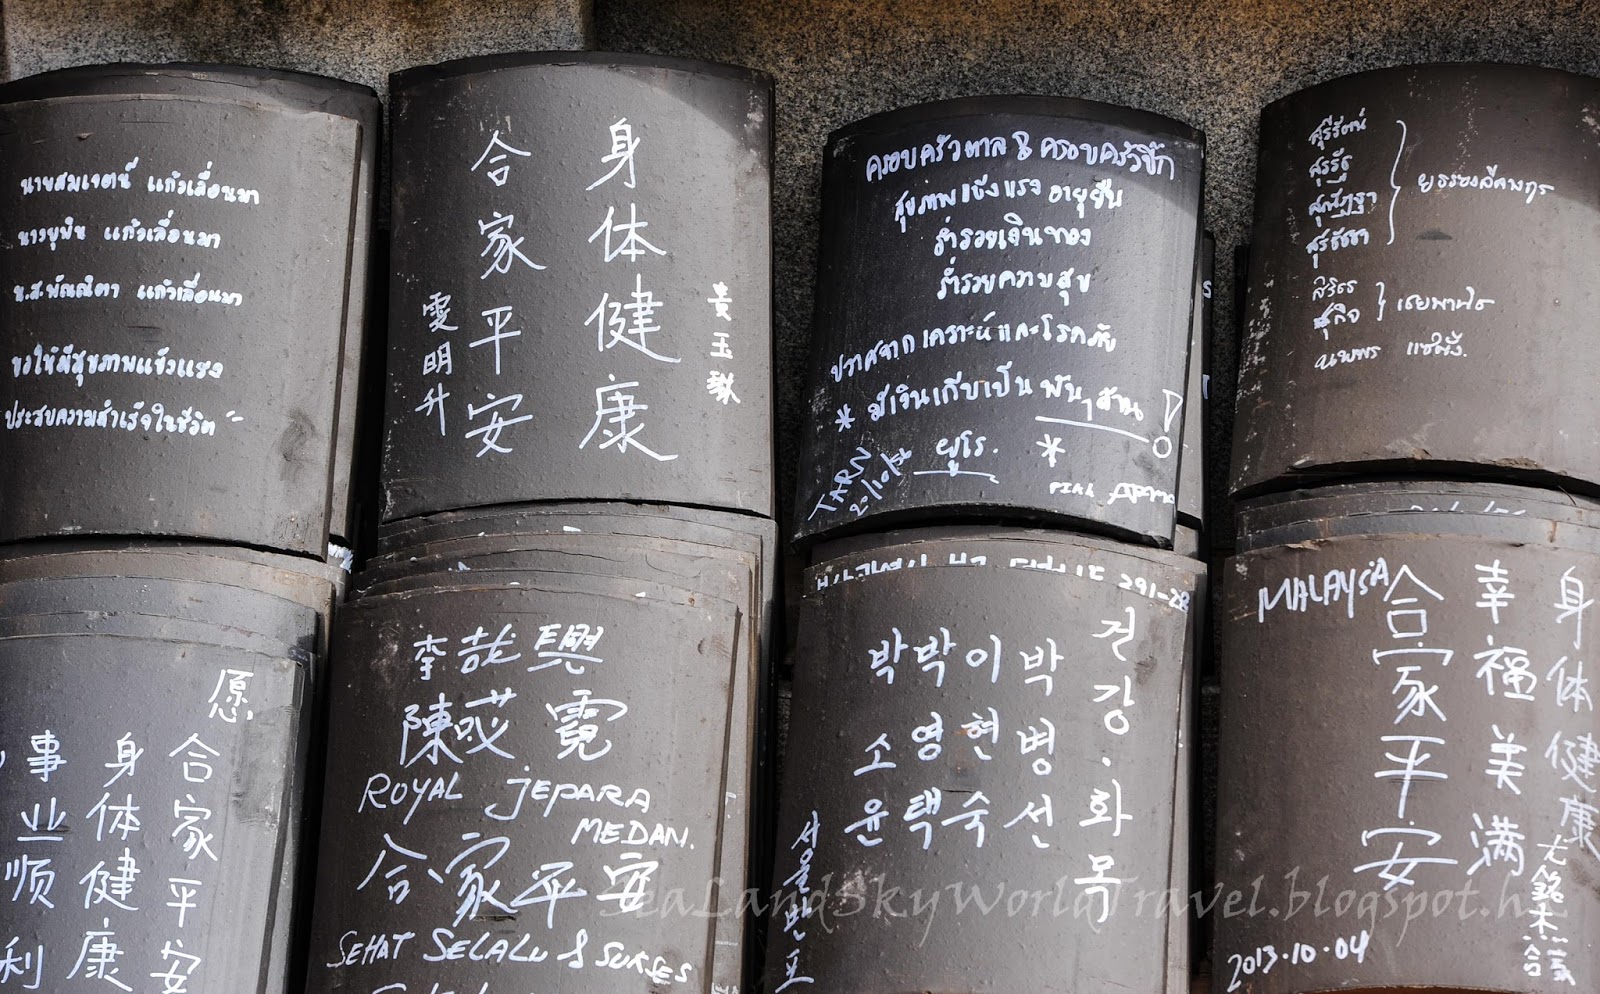 นายสมเจตน์ แก้วเลื่อนมา
นางยุพิน แก้วเลื่อนมา
น.ส.พัณณิตา แก้วเลื่อนมา
ขอให้มีสุขภาพแข็งแรง
ประสบความสำเร็จในชีวิต
身体健康
合家平安
雯明升
黄玉
ครอบครัวตาล & ครอบครัวปิ๊ก
สุขภาพแข็งแรง อายุยืน
ร่ำรวยเงินทอง
ร่ำรวยความสุข
ปราศจากเคราะห์และโรคภัย
* มีเงินเก็บเป็น พันๆล้าน!
ยูโร. *
TARN
20/10/56
สุรีรัตน์
愿
合家平安
身体健康
事业顺利
李哉興
陳 霓
ROYAL JEPARA
MEDAN.
合家平安
SEHAT SELALU & SUKSES
291-28
건강·화목
박병선
이현숙
박영택
박소윤
서울반포
MALAYSIA
身体健康
幸福美满
合家平安
尤銘杰
2013.10.04
SeaLandSkyWorldTravel.blogspot.hk